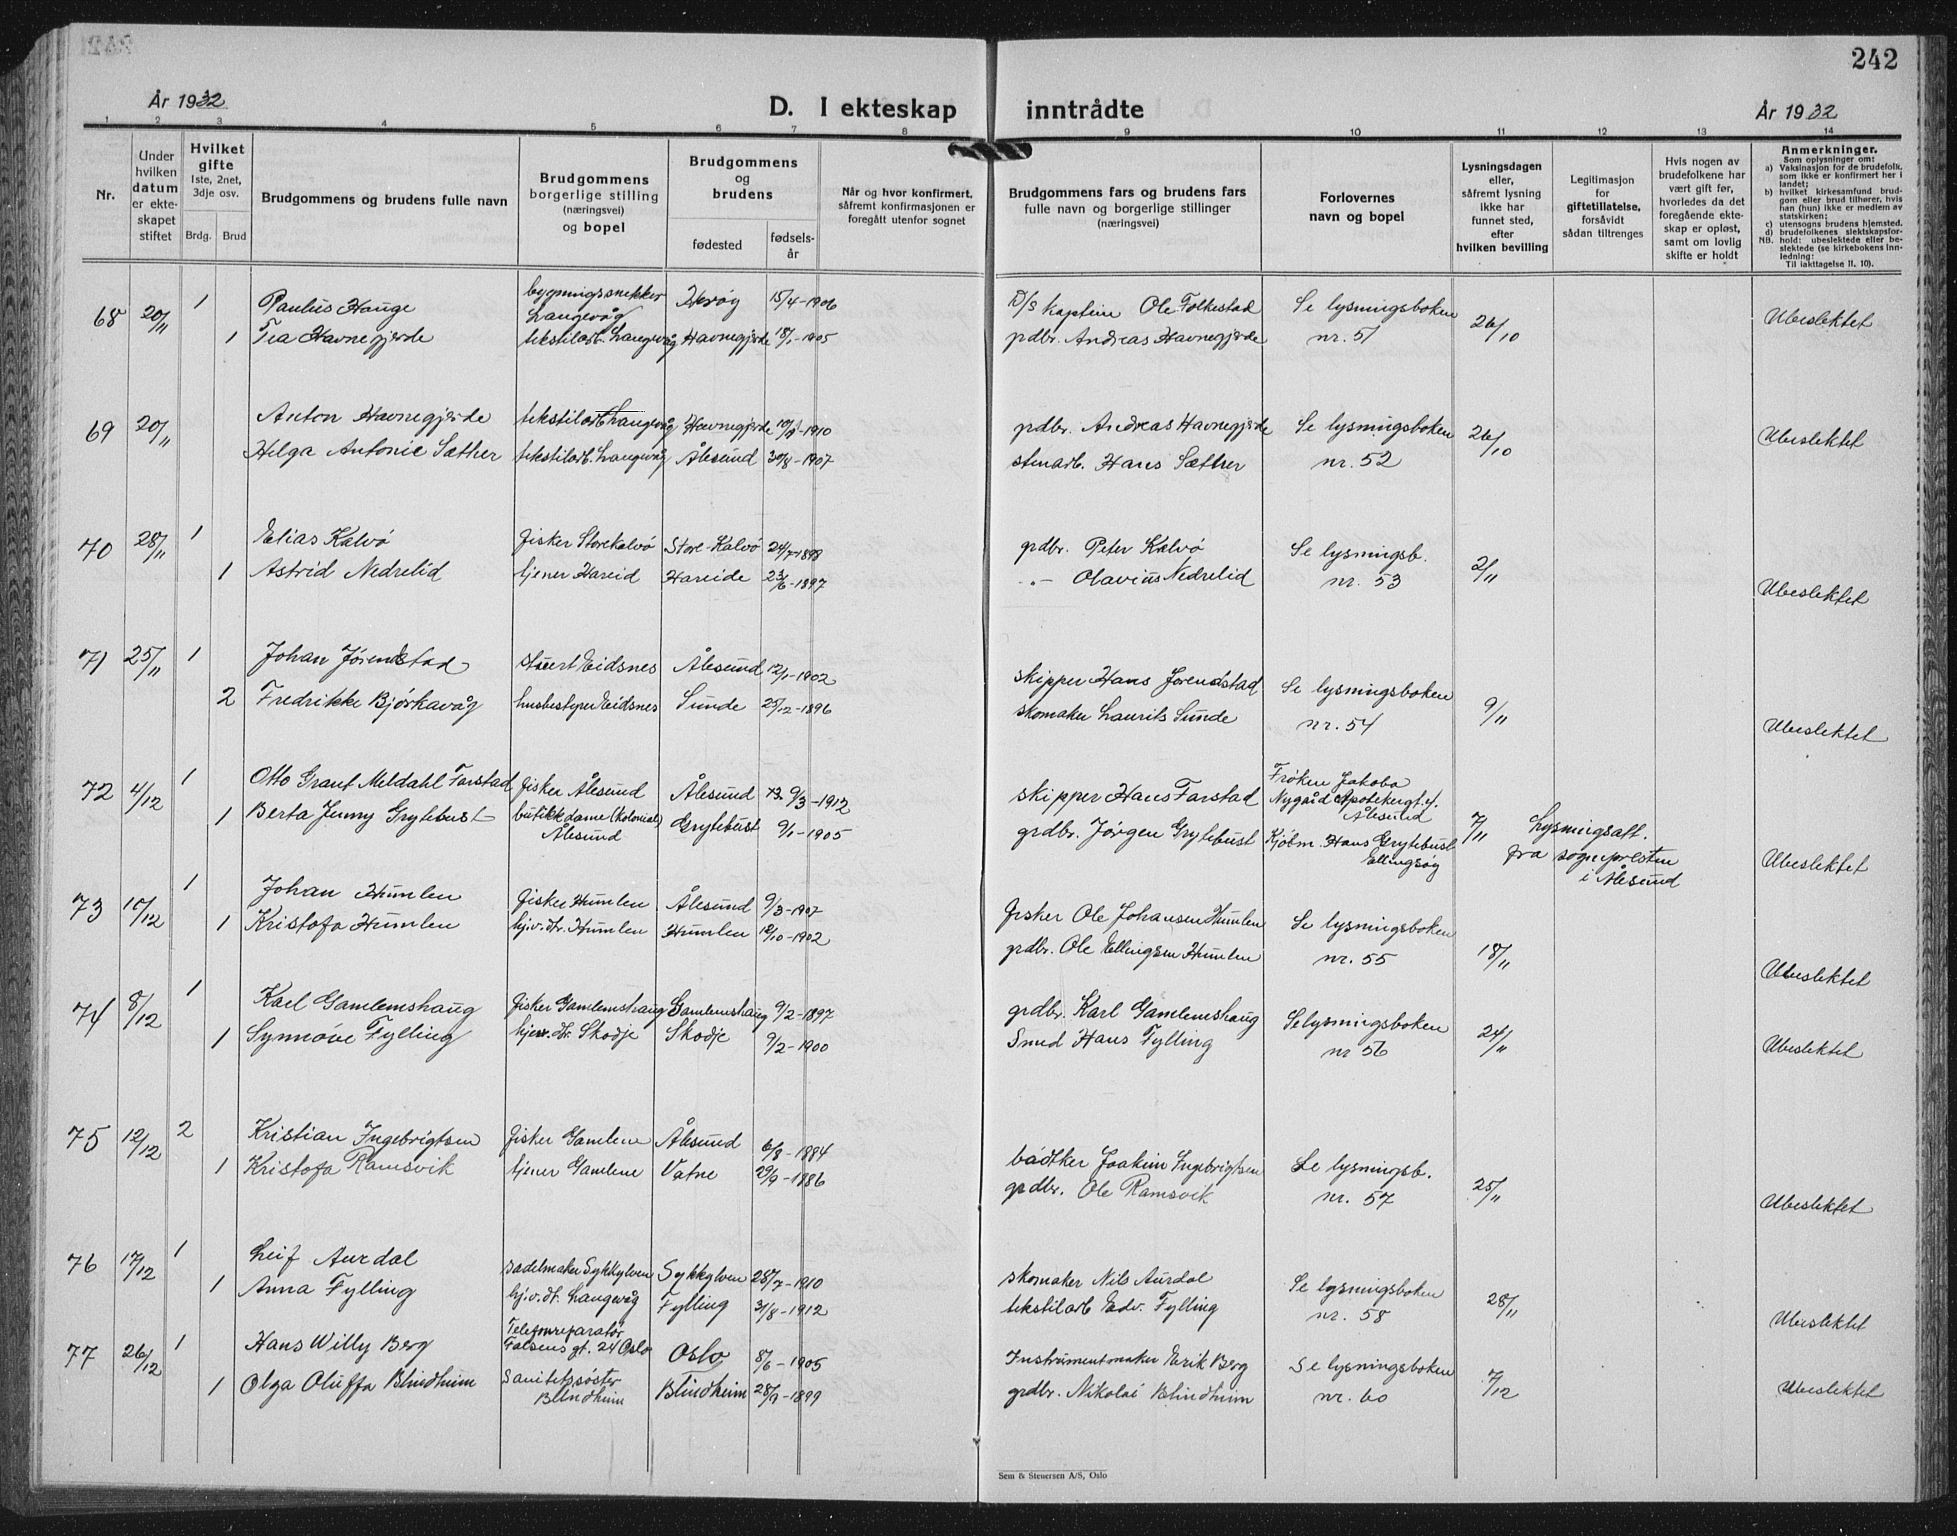 242
År 1932
D. I ekteskap inntrådte
År 1932
1 2 3 4 5 6 7 8 9 10 11 12 13 14
Nr.
Under hvilken datum er ekteskapet stiftet
Hvilket gifte
1ste, 2net, 3dje osv.
Brdg. Brud
Brudgommens og brudens fulle navn
Brudgommens borgerlige stilling (næringsvei) og bopel
Brudgommens og brudens
fødested
fødselsår
Når og hvor konfirmert, såfremt konfirmasjonen er foregått utenfor sognet
Brudgommens fars og brudens fars fulle navn og borgerlige stillinger (næringsvei)
Forlovernes navn og bopel
Lysningsdagen eller, såfremt lysning ikke har funnet sted, efter hvilken bevilling
Legitimasjon for giftetillatelse, forsåvidt sådan tiltrenges
Hvis nogen av brudefolkene har vært gift før, hvorledes da det foregående ekteskap er opløst, samt om lovlig skifte er holdt
Anmerkninger.
Som oplysninger om:
a) Vaksinasjon for de brudefolk, som ikke er konfirmert her i landet;
b) hvilket kirkesamfund brudgom eller brud tilhører, hvis han (hun) ikke er medlem av statskirken;
c) utensogns brudens hjemsted.
d) brudefolkenes slektskapsforhold: ubeslektede eller beslektede (se kirkebokens innledning:
NB. Til iakttagelse II. 10).
68 20/11 1 Paulus Hauge bygningssnekker Langevåg Herøy 15/4-1906 D/S kaptein Ole Folkestad Se lysningsboken
1 Tea Havnegjerde tekstilarb. Langevåg Havnegjerde 18/1-1905 grdbr. Andreas Havnegjerde nr. 51 26/10 Ubeslektet
69 20/11 Anton Havnegjerde tekstilarb. Langevåg Havnegjerde 1910 grdbr. Andreas Havnegjerde Se lysningsboken
Helga Antonie Sæther tekstilarb. Langevåg Ålesund 30/8-1907 stenarb. Hans Sæther nr. 52 26/10 Ubeslektet
70 28/11 1 Elias Kalvø fisker Storekalvø Store-Kalvø 24/7-1898 grdbr. Peter Kalvø Se lysningsb.
1 Astrid Nedrelid tjener Hareid Hareide 23/6-1897 -"- Olavius Nedrelid nr. 53 2/11 Ubeslektet
71 25/11 1 Johan Jørendstad stuert Eidsnes Ålesund 12/1-1902 skipper Hans Jørendstad Se lysningsboken
2 Fredrikke Bjørkavåg husbestyrer Eidsnes Sunde 25/12-1896 skomaker Laurits Sunde nr. 54 9/11 Ubeslektet
72 4/12 1 Otto Grant Meldahl Farstad fisker Ålesund Ålesund 9/3-1912 skipper Hans Farstad Frøken Jakoba Nygård Apotekergt. 4. Ålesund
1 Berta Jenny Grytebust butikkdame (kolonial) Ålesund Grytebust 9/1-1905 grdbr. Jørgen Grytebust Kjøbm. Hans Grytebust Ellingsøy 7/11 Lysningsatt. fra sognepresten i Ålesund Ubeslektet
73 10/12 1 Johan Humlen fisker Humlen Ålesund 9/3-1907 fisker Ole Johansen Humlen Se lysningsboken
1 Kristofa Humlen hj.v. dt. Humlen Humlen 12/10-1902 grdbr. Ole Ellingsen Humlen nr. 55 18/11 Ubeslektet
74 8/12 1 Karl Gamlemshaug fisker Gamlemshaug Gamlemshaug 9/2-1897 grdbr. Karl Gamlemshaug Se lysningsboken
1 Synnøve Fylling hjv. dt. Skodje Skodje 9/2-1900 Smed Hans Fylling nr 56 24/11 Ubeslektet
75 12/12 2 Kristian Ingebrigtsen fisker Gamlem Ålesund 6/8-1884 bødker Joakim Ingebrigtsen Se lysningsb.
1 Kristofa Ramsvik tjener Gamlem Vatne 29/9-1886 grdbr. Ole Ramsvik nr. 57 25/11 Ubeslektet
76 17/12 1 Leif Aurdal sadelmaker Sykkylven Sykkylven 28/7-1910 skomaker Nils Aurdal Se lysningsboken
1 Anna Fylling hj.v. dt. Langevåg Fylling 31/8-1912 tekstilarb Edv. Fylling nr. 58 28/11 Ubeslektet
77 26/12 1 Hans Willy Berg Telefonreparatør Falsens gt. 24 Oslo Oslo 8/6-1905 Instrumentmaker Erik Berg Se lysningsboken
1 Olga Oluffa Blindheim Sanitetssøster Blindheim Blindheim 28/9-1899 grdbr. Nikolai Blindheim nr. 60 7/12 Ubeslektet
Sem & Stenersen A/S, Oslo